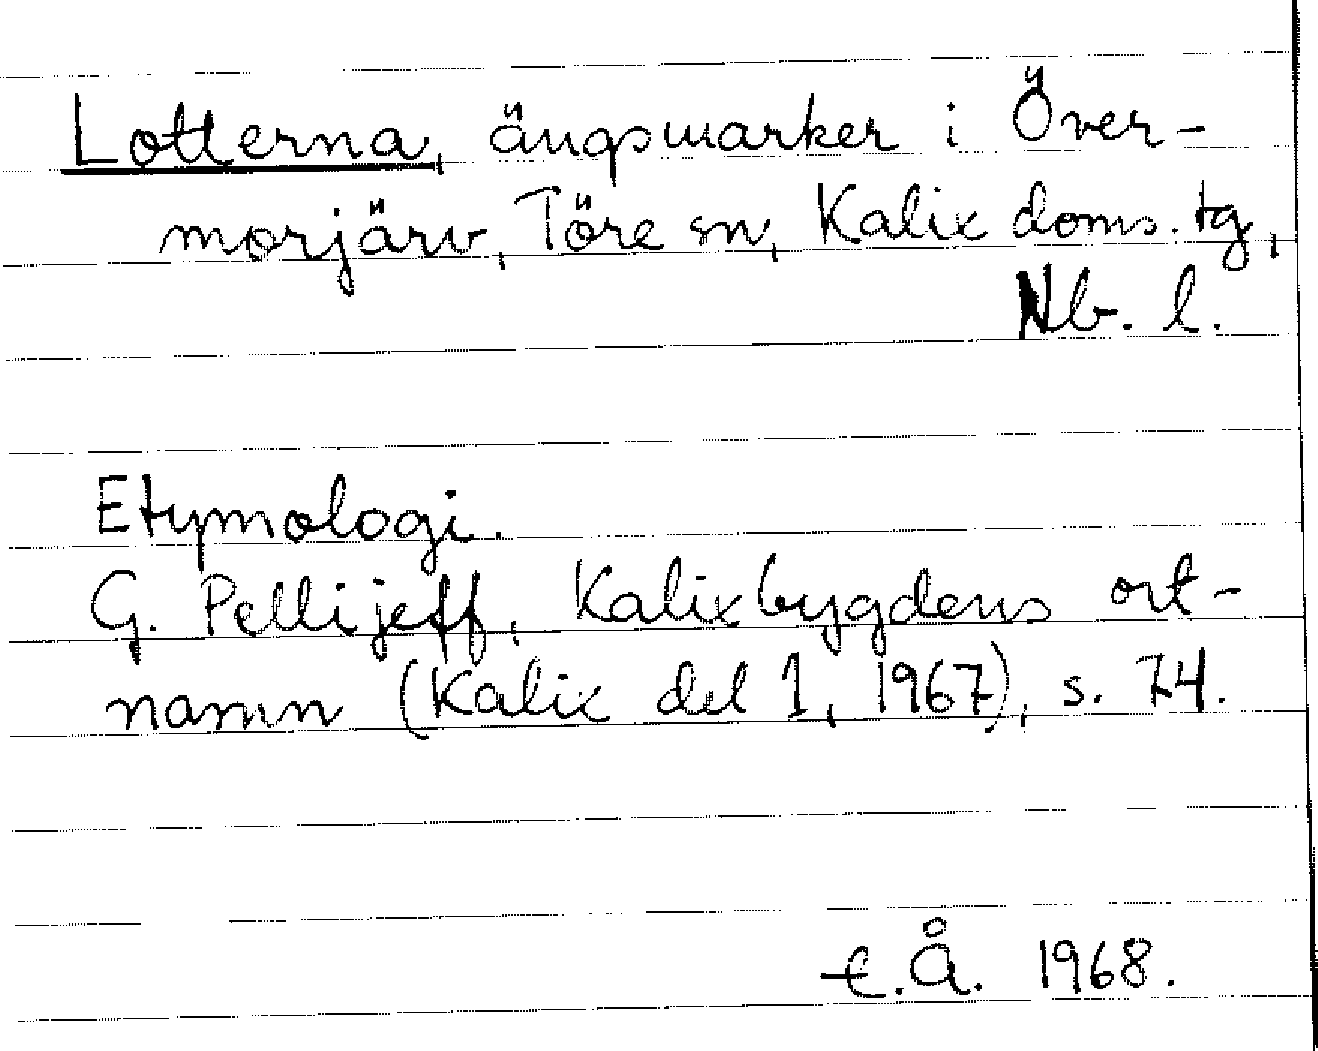 Lotterna, ängsmarker i Över-
morjärv, Töre sn, Kalix doms. tg,
Nb. l.
Etymologi.
G. Pellijeff, Kalixbygdens ort-
namn (Kalix del 1, 1967), s. 74.
E.Å. 1968.